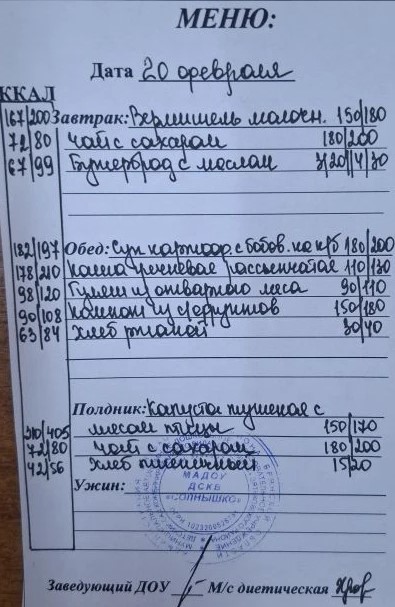 МЕНЮ:
Дата 20 февраля
ККАЛ
167/200 Завтрак: Вермишель молочн. 150/180
72/80 Чай с сахаром 180/200
67/99 Бутерброд с маслом 3/20//4/30
182/197 Обед: Суп картоф. с бобов. на к/б 180/200
178/210 Каша гречневая рассыпчатая 110/130
98/120 Гуляш из отварного мяса 90/110
90/108 Компот из с/фруктов 150/180
63/84 Хлеб ржаной 30/40
Полдник: Капуста тушеная с
310/405 мясом птицы 150/170
72/80 Чай с сахаром 180/200
42/56 Хлеб пшеничный 15/20
МАДОУ
ДСКВ
«СОЛНЫШКО»
Ужин:
Заведующий ДОУ М/с диетическая